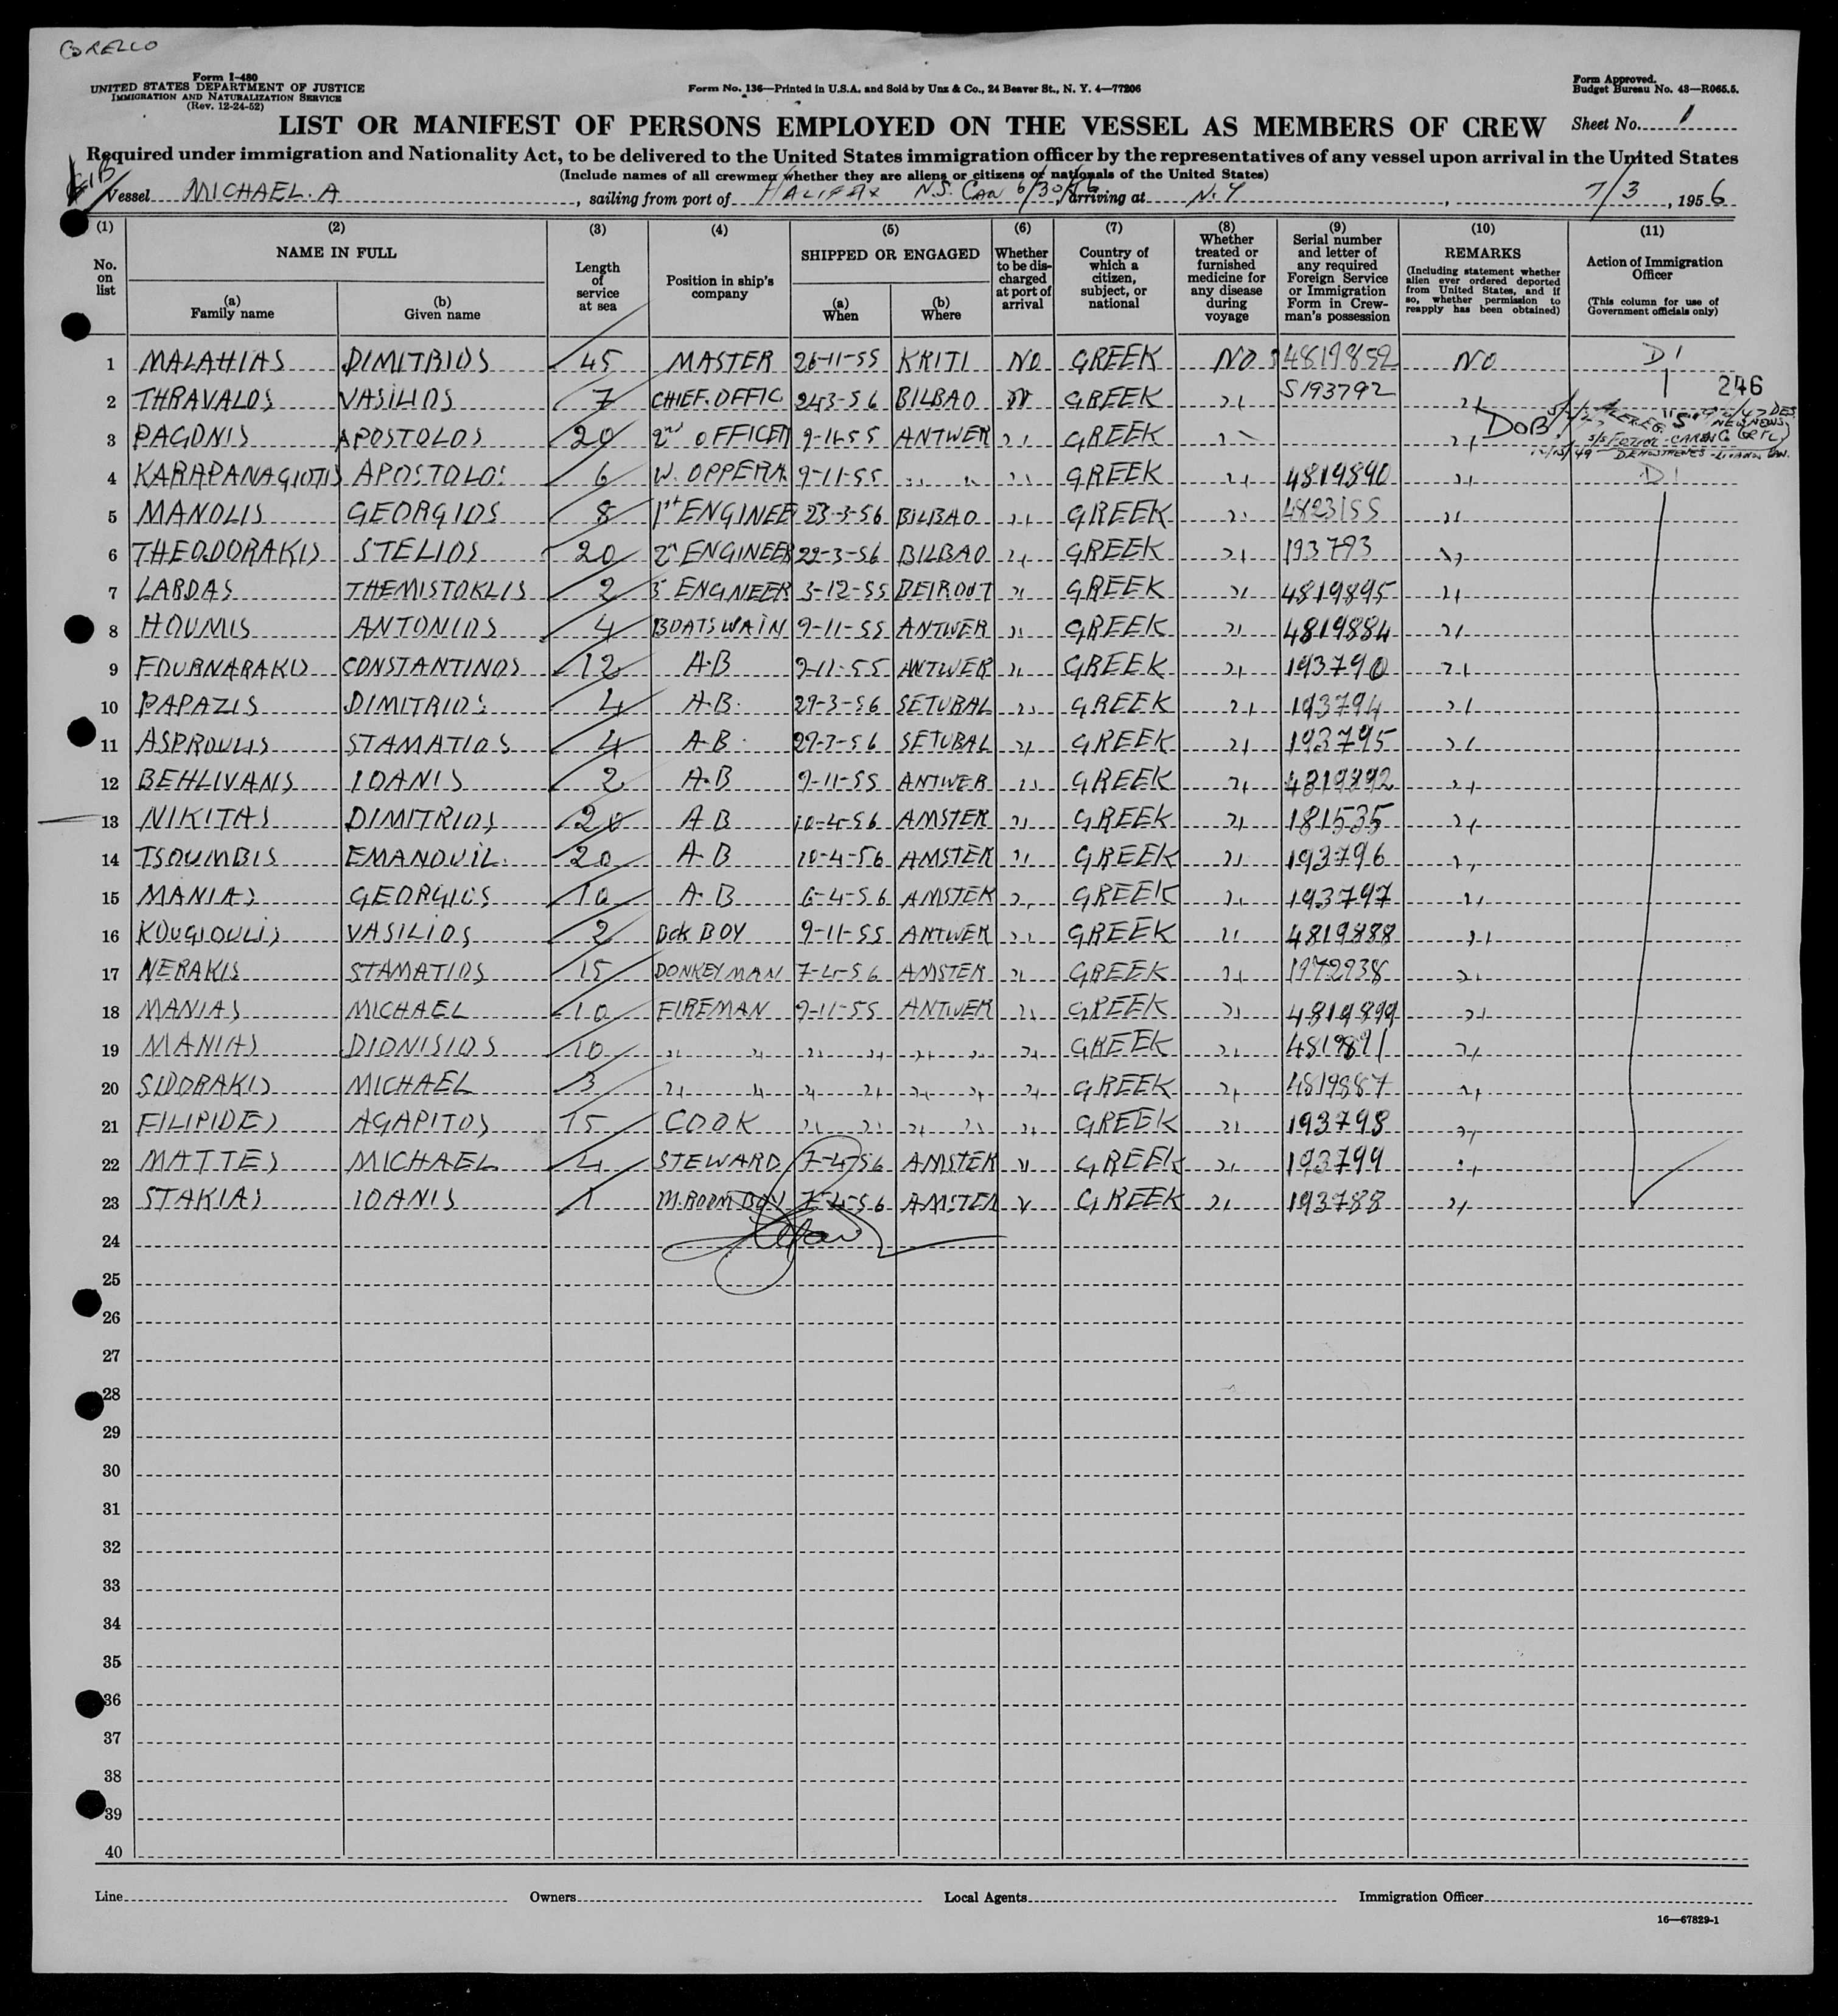 CORELLO
Form I-480
UNITED STATES DEPARTMENT OF JUSTICE
IMMIGRATION AND NATURALIZATION SERVICE
(Rev. 12-24-52)
Form No. 136—Printed in U.S.A. and Sold by Unz & Co., 24 Beaver St., N. Y. 4—77206
Form Approved.
Budget Bureau No. 43—R065.5.
LIST OR MANIFEST OF PERSONS EMPLOYED ON THE VESSEL AS MEMBERS OF CREW Sheet No. 1
Required under immigration and Nationality Act, to be delivered to the United States immigration officer by the representatives of any vessel upon arrival in the United States
(Include names of all crewmen whether they are aliens or citizens or nationals of the United States)
Vessel MICHAEL. A , sailing from port of HALIFAX N.S. CAN 6/30/56, arriving at N.Y , 7/3, 1956
(1) No. on list
(2) NAME IN FULL (a) Family name (b) Given name
(3) Length of service at sea
(4) Position in ship's company
(5) SHIPPED OR ENGAGED (a) When (b) Where
(6) Whether to be discharged at port of arrival
(7) Country of which a citizen, subject, or national
(8) Whether treated or furnished medicine for any disease during voyage
(9) Serial number and letter of any required Foreign Service or Immigration Form in Crewman's possession
(10) REMARKS (Including statement whether alien ever ordered deported from United States, and if so, whether permission to reapply has been obtained)
(11) Action of Immigration Officer (This column for use of Government officials only)
1 MALAHIAS DIMITRIOS 45 MASTER 26-11-55 KRITI NO GREEK NO 4819852 NO D1
246
2 THRAVALOS VASILIOS 7 CHIEF.OFFIC 243-56 BILBAO GREEK 21 5193792 21
3 PAGONIS APOSTOLOS 20 2nd OFFICER 9-11-55 ANTWER 21 GREEK 21 21 DOB
4 KARAPANAGIOTIS APOSTOLOS 6 W. OPPERA 9-11-55 " " 21 GREEK 21 4819890 21 D1
5 MANOLIS GEORGIOS 8 1st ENGINEE 23-3-56 BILBAO 21 GREEK 21 4823155 21
6 THEODORAKIS STELIOS 20 2n ENGINEER 22-3-56 BILBAO 21 GREEK 21 193793 21
7 LARDAS THEMISTOKLIS 2 3 ENGINEER 3-12-55 BEIROUT 21 GREEK 21 4819895 21
8 HOUMIS ANTONIOS 4 BOATSWAIN 9-11-55 ANTWER 21 GREEK 21 4819884 21
9 FOURNARAKIS CONSTANTINOS 12 A.B 9-11-55 ANTWER 21 GREEK 21 193790 21
10 PAPAZIS DIMITRIOS 4 A.B. 29-3-56 SETUBAL 21 GREEK 21 193794 21
11 ASPROULIS STAMATIOS 4 A.B. 29-3-56 SETUBAL 21 GREEK 21 193795 21
12 BEHLIVANIS IOANIS 2 A.B 9-11-55 ANTWER 21 GREEK 21 4819892 21
13 NIKITAS DIMITRIOS 20 A B 10-4-56 AMSTER 21 GREEK 21 181535 21
14 TSOUMBIS EMANOUIL. 20 A.B 10-4-56 AMSTER 21 GREEK 21 193796 21
15 MANIAS GEORGIOS 10 A.B 6-4-56 AMSTER 21 GREEK 21 193797 21
16 KOUGIOULIS VASILIOS 2 Dck BOY 9-11-55 ANTWER 21 GREEK 21 4819888 21
17 NERAKIS STAMATIOS 15 DONKEYMAN 7-4-56 AMSTER 21 GREEK 21 1972938 21
18 MANIAS MICHAEL 10 FIREMAN 9-11-55 ANTWER 21 GREEK 21 4819899 21
19 MANIAS DIONISIOS 10 21 21 21 21 21 21 21 GREEK 21 4819891 21
20 SIDORAKIS MICHAEL 3 21 21 21 21 21 21 21 GREEK 21 4819887 21
21 FILIPIDES AGAPITOS 15 COOK 21 21 21 21 21 GREEK 21 193798 21
22 MATTES MICHAEL 4 STEWARD 7-4-56 AMSTER 21 GREEK 21 193799 21
23 STAKIAS IOANIS 1 M.ROOM BOY 7-4-56 AMSTER GREEK 21 193788 21
24
25
26
27
28
29
30
31
32
33
34
35
36
37
38
39
40
Line Owners Local Agents Immigration Officer
16—67829-1